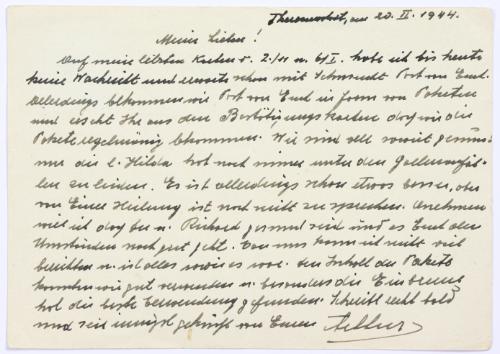 Theresienstadt, am 20. II. 1944.
Meine Lieben!
Auf meine letzten Karten v. 2./11 u. 6/I. habe ich bis heute
keine Nachricht und erwarte schon mit Sehnsucht Post von Euch.
Allerdings bekommen wir Post von Euch in Form von Paketen
und ersieht Ihr aus den Bestätigungskarten dass wir die
Pakete regelmässig bekommen. Wir sind alle soweit gesund
nur die l. Hilda hat noch immer unter den Gallenanfäl-
len zu leiden. Es ist allerdings schon etwas besser, aber
von Einer Heilung ist noch nicht zu sprechen. Annehmen
will ich dass Ihr u. Richard gesund seid und es Euch den
Umständen nach gut geht. Von uns kann ich nicht viel
berichten u. ist alles sowie es war. Den Inhalt der Pakete
konnten wir gut verwenden u. besonders die Einbrenn
hat die beste Verwendung gefunden. Schreibt recht bald
und seid innigst geküsst von Eurem Arthur